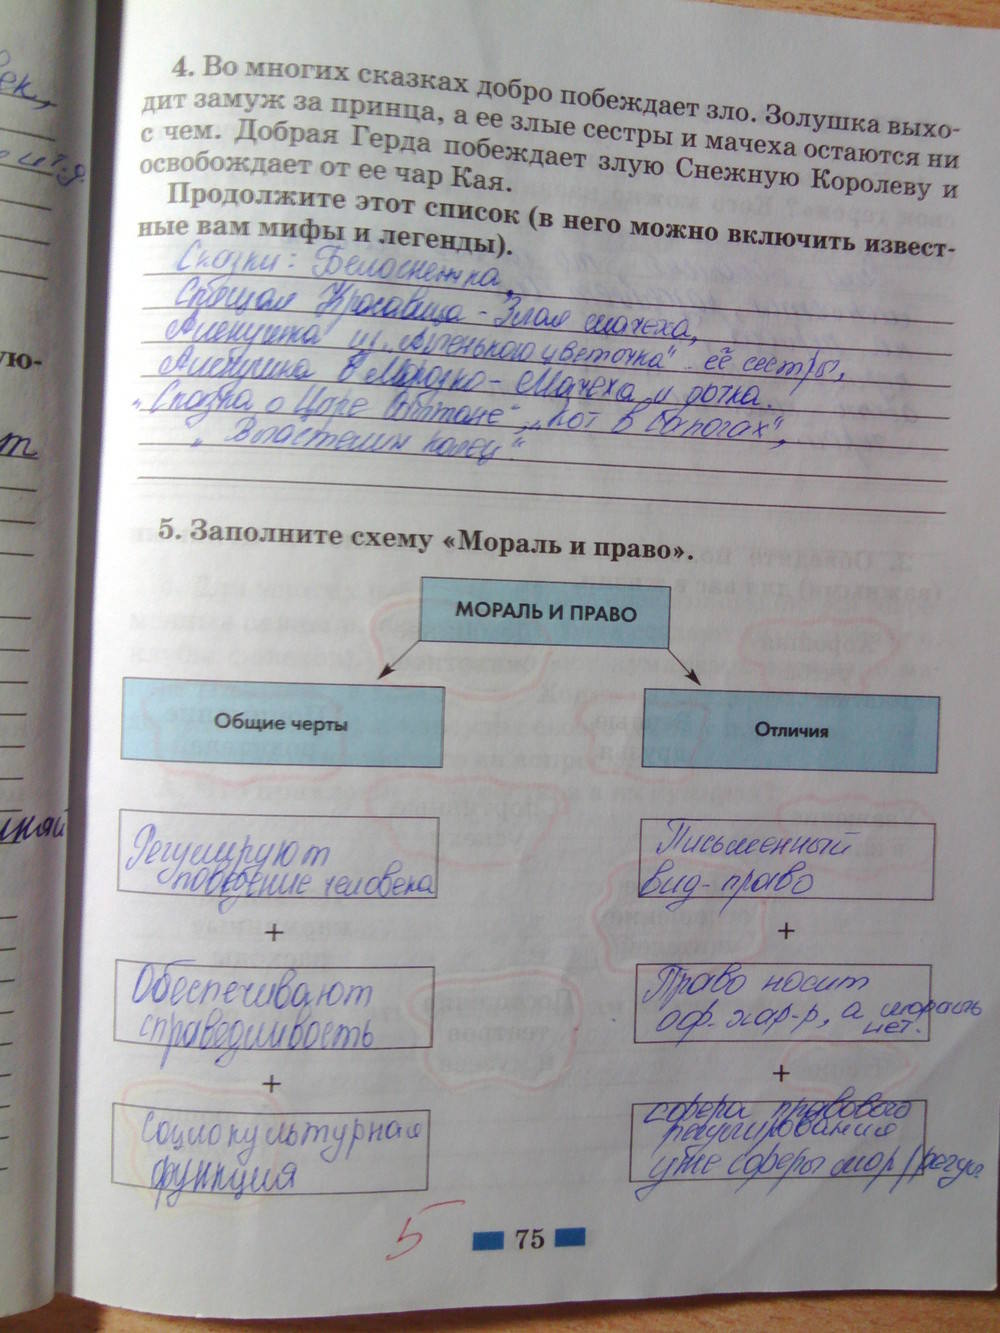 4. Во многих сказках добро побеждает зло. Золушка выхо-
дит замуж за принца, а ее злые сестры и мачеха остаются ни
с чем. Добрая Герда побеждает злую Снежную Королеву и
освобождает от ее чар Кая.
Продолжите этот список (в него можно включить извест-
ные вам мифы и легенды).
Сказки: Белоснежка,
Спящая Красавица - Злая мачеха,
Аленушка из „Аленького цветочка" - её сестры,
Аленушка в Морозко - Мачеха и дочка.
„Сказка о Царе Салтане", „Кот в Сапогах",
„Властелин колец"
5. Заполните схему «Мораль и право».
МОРАЛЬ И ПРАВО
Общие черты
Отличия
Регулируют
поведение человека
Письменный
вид - право
+
+
Обеспечивают
справедливость
Право носит
оф. хар-р, а мораль
нет.
+
+
Социокультурная
функция
сфера правового
регулирования
уже сферы мор. регул.
5
75
ую-